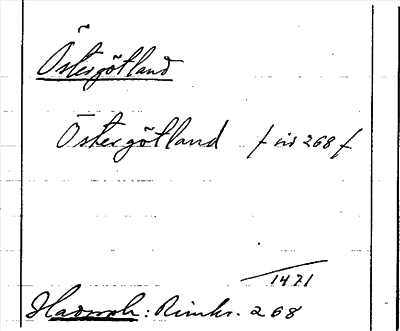 Östergötland
Östergötland f sid 268 f
1471
Hadorph: Rimkr. 268